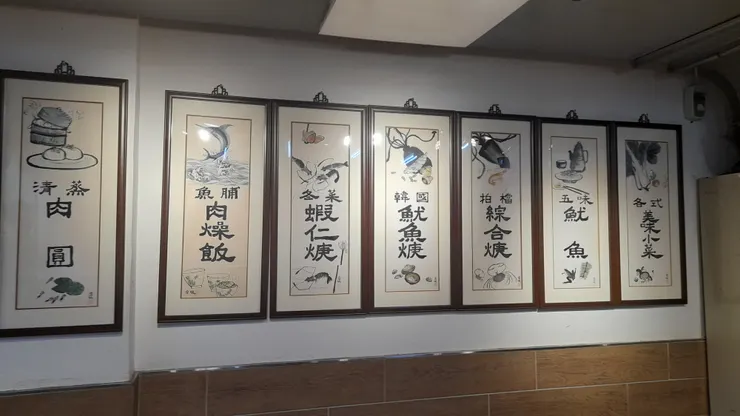 清蒸
肉圓
魚脯
肉燥飯
冬菜
蝦仁焿
韓國
魷魚焿
拍檔
綜合焿
五味
魷魚
各式
美味小菜